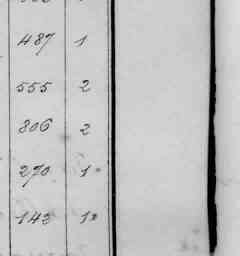 487 1
555 2
806 2
270 1
142 1